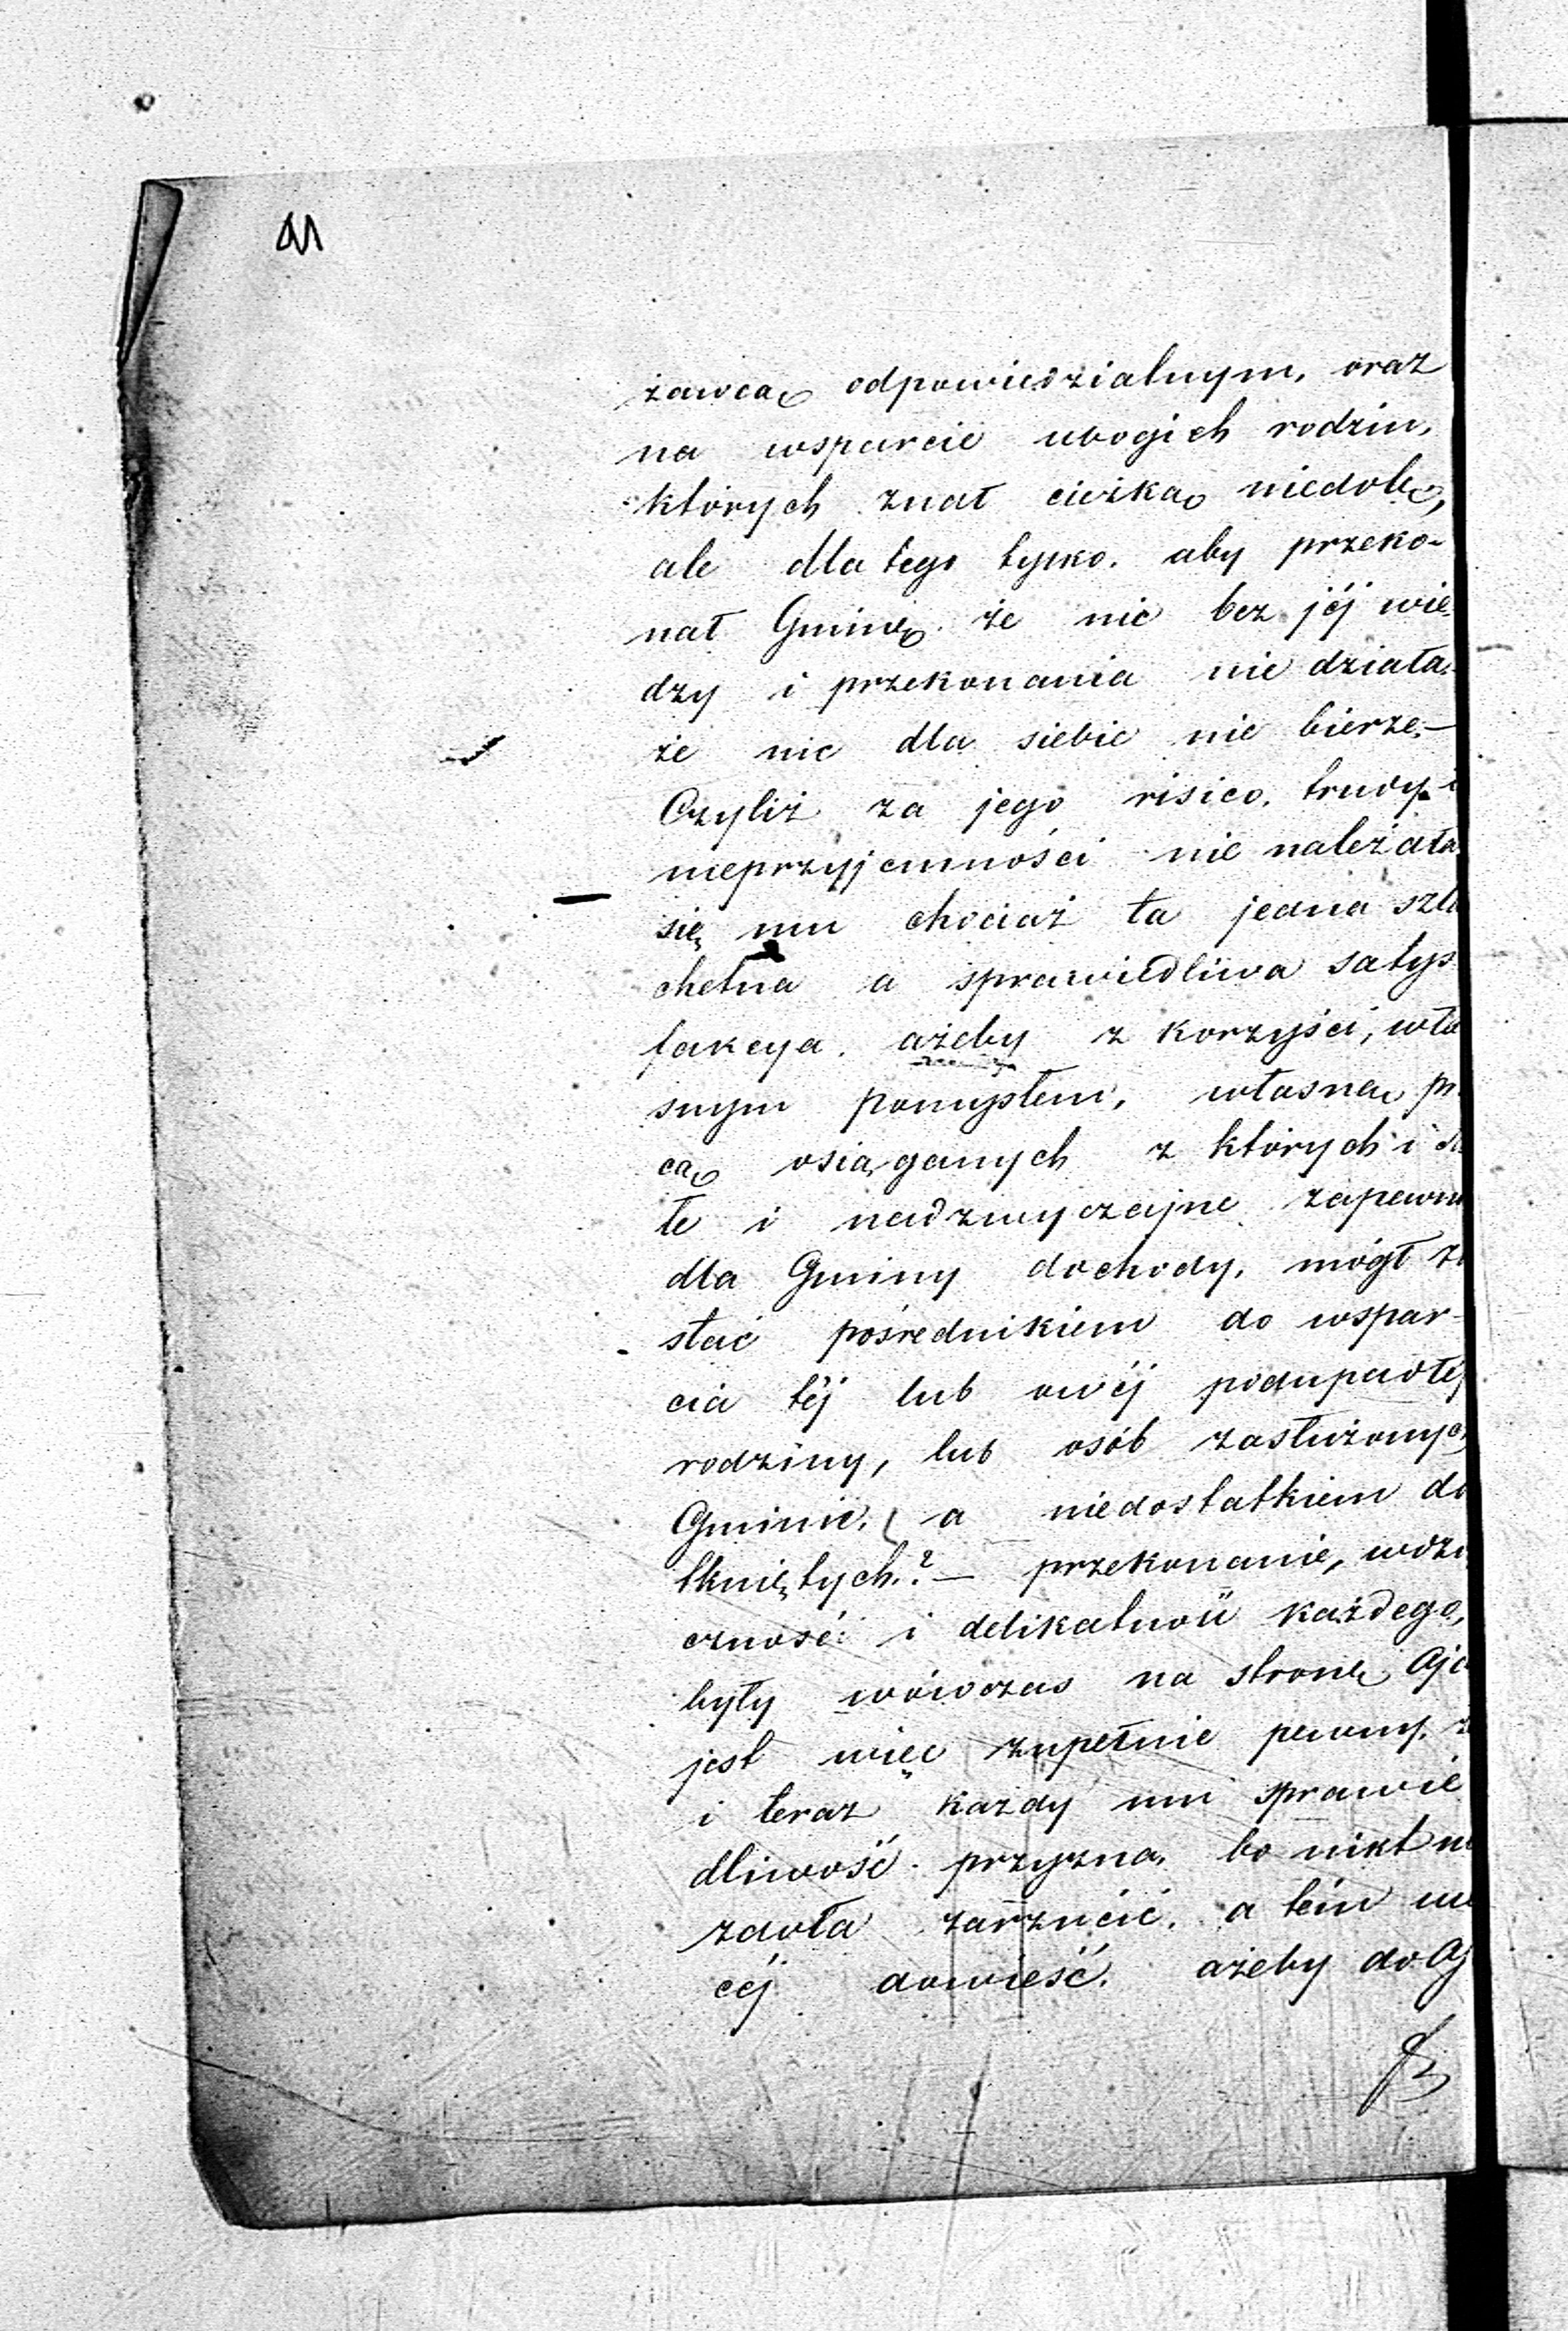 żawcą odpowiedzialnym, oraz
na wsparcie ubogich rodzin,
których znał ciężką niedolę,
ale dla tego tylko, aby przeko-
nał Gminę że nic bez jéj wie-
dzy i przekonania nie działa,
że nic dla siebie nie bierze.—
Czyliż za jego risico, trudy i
nieprzyjemności nie należała
się mu chociaż ta jedna szla
chetna a sprawiedliwa satys
fakcya, ażeby z korzyści, wła
snym pomysłem, własną pr
cą osiąganych z których i sta
łe i nadzwyczajne zapewni
dla Gminy dochody, mógł zo
stać pośrednikiem do wspar-
cia téj lub owéj podupadłéj
rodziny, lub osób zasłużonych
Gminie, a niedostatkiem do
tkniętych.? — przekonanie, wdzi
czność i delikatność każdego,
były wówczas na stronę Aje
jest więc zupełnie pewny, ż
i teraz każdy mu sprawie
dliwość przyzna, bo nikt ni
zdoła zarzucić, a tém wi
céj dowieść, ażeby do Aj